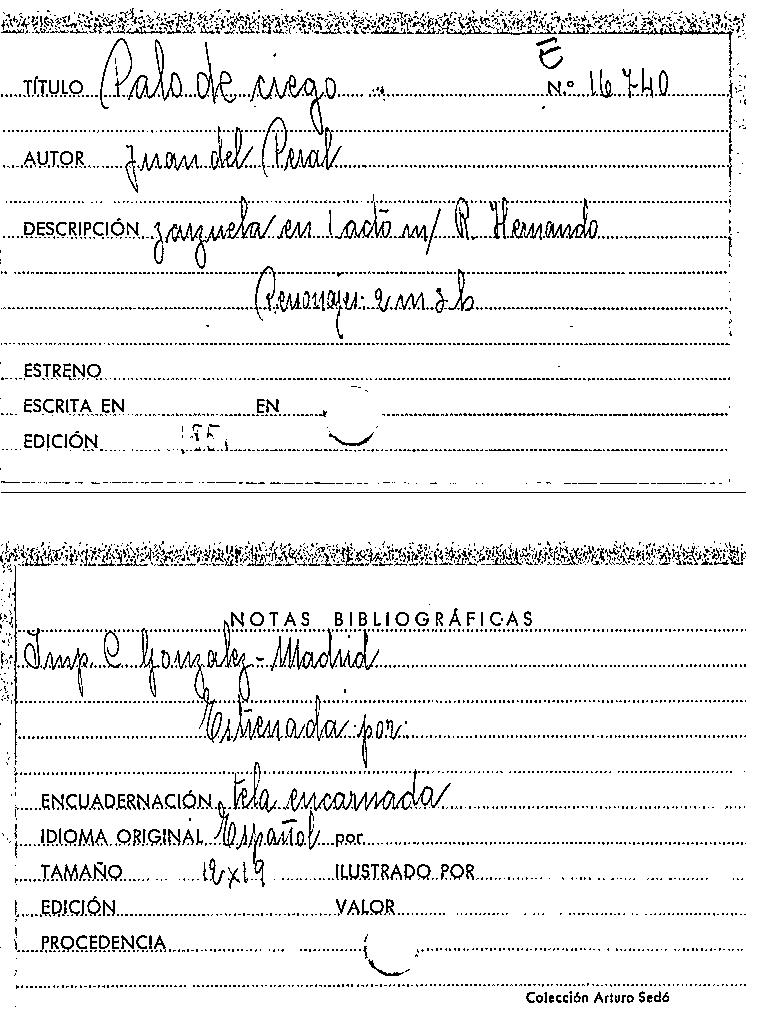 E
TÍTULO Palo de ciego N.º 16740
AUTOR Juan del Peral
DESCRIPCIÓN zarzuela en 1 acto m/ R. Hernando
Personajes: 2 m 2 h
ESTRENO
ESCRITA EN EN
EDICIÓN
NOTAS BIBLIOGRÁFICAS
Imp. C. Gonzalez - Madrid
Estrenada por:
ENCUADERNACIÓN tela encarnada
IDIOMA ORIGINAL Español por
TAMAÑO 12x19 ILUSTRADO POR
EDICIÓN VALOR
PROCEDENCIA
Colección Arturo Sedó